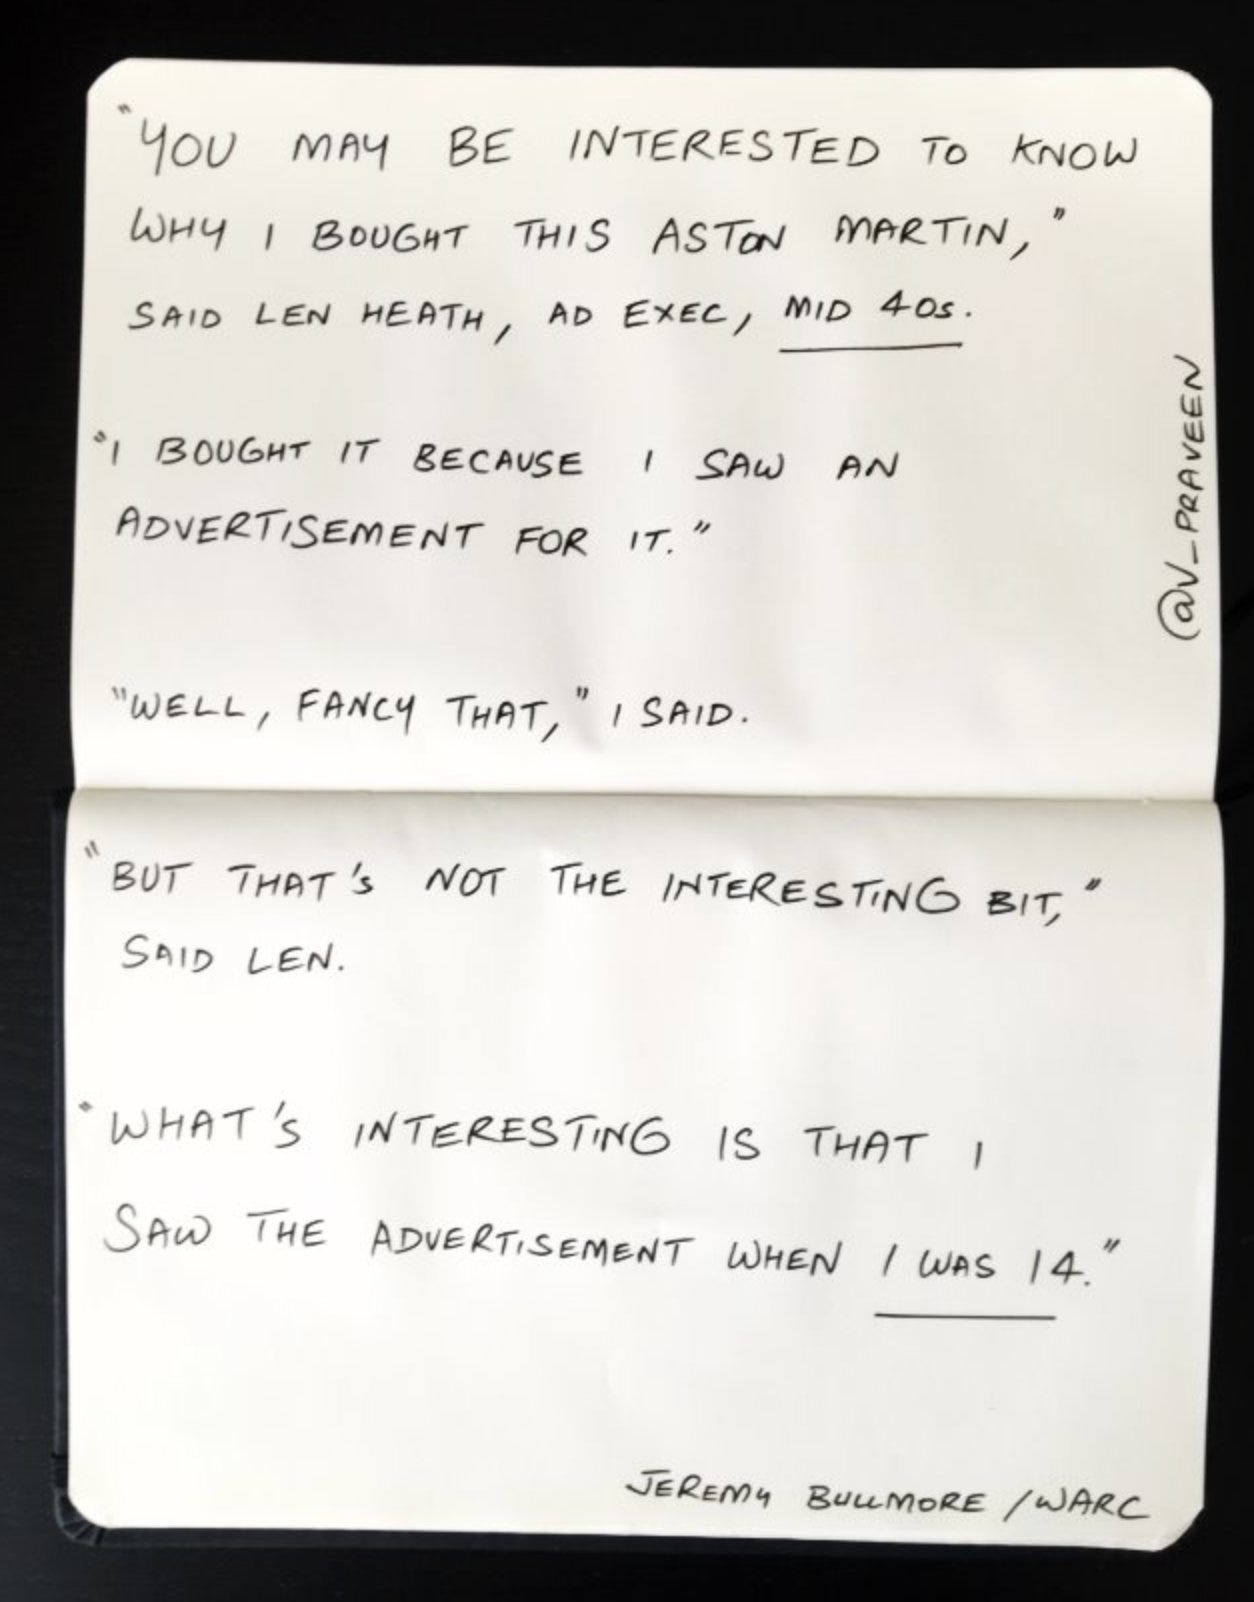 "YOU MAY BE INTERESTED TO KNOW
WHY I BOUGHT THIS ASTON MARTIN,"
SAID LEN HEATH, AD EXEC, MID 40s.
"I BOUGHT IT BECAUSE I SAW AN
ADVERTISEMENT FOR IT."
"WELL, FANCY THAT," I SAID.
@V_PRAVEEN
"BUT THAT's NOT THE INTERESTING BIT,"
SAID LEN.
"WHAT's INTERESTING IS THAT I
SAW THE ADVERTISEMENT WHEN I WAS 14."
JEREMY BULLMORE / WARC